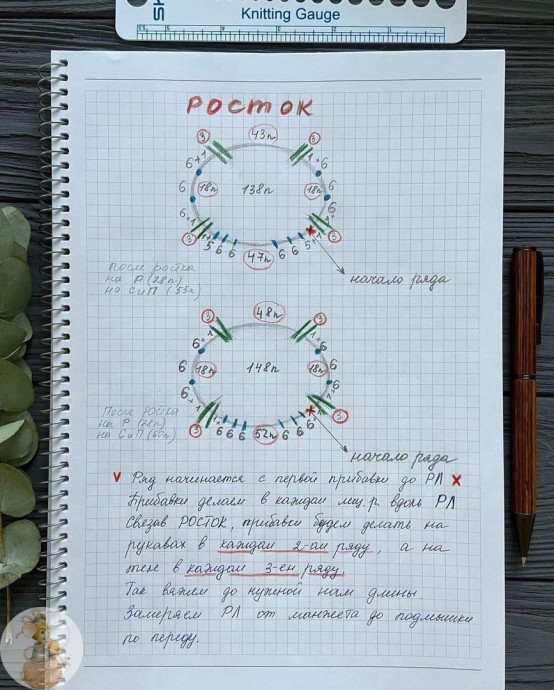 SH
Knitting Gauge
РОСТОК
3 43п 3
6+1 1+6
6 18п 138п 18п 6
6+1 6
3 1+5 6 6 47п 6 6 5+1 3
После ростка
на Р (28п)
на СиП (53п)
начало ряда
3 48п 3
6+1 1+6
6 18п 148п 18п 6
6+1 6
3 6 6 6 52п 6 6 6 3
После ростка
на Р (28п)
на СиП
начало ряда
V Ряд начинается с первой прибавки до РЛ X
Прибавки делаем в каждом лиц.р. вдоль РЛ
Связав РОСТОК, прибавки будем делать на
рукавах в каждом 2-ом ряду, а на
теле в каждом 3-ем ряду.
Так вяжем до нужной нам длины.
Замеряем РЛ от манжета до подмышки
по переду.